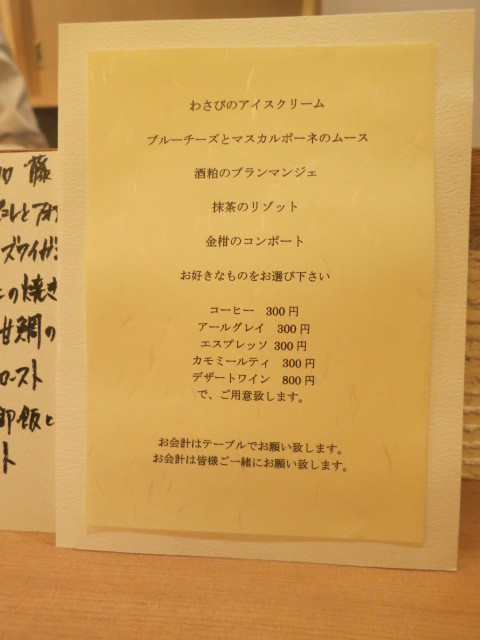 わさびのアイスクリーム
ブルーチーズとマスカルポーネのムース
酒粕のブランマンジェ
抹茶のリゾット
金柑のコンポート
お好きなものをお選び下さい
コーヒー 300円
アールグレイ 300円
エスプレッソ 300円
カモミールティ 300円
デザートワイン 800円
で、ご用意致します。
お会計はテーブルでお願い致します。
お会計は皆様ご一緒にお願い致します。
藤
ズワイガ
の焼き
甘鯛の
ロースト
御飯と
ト